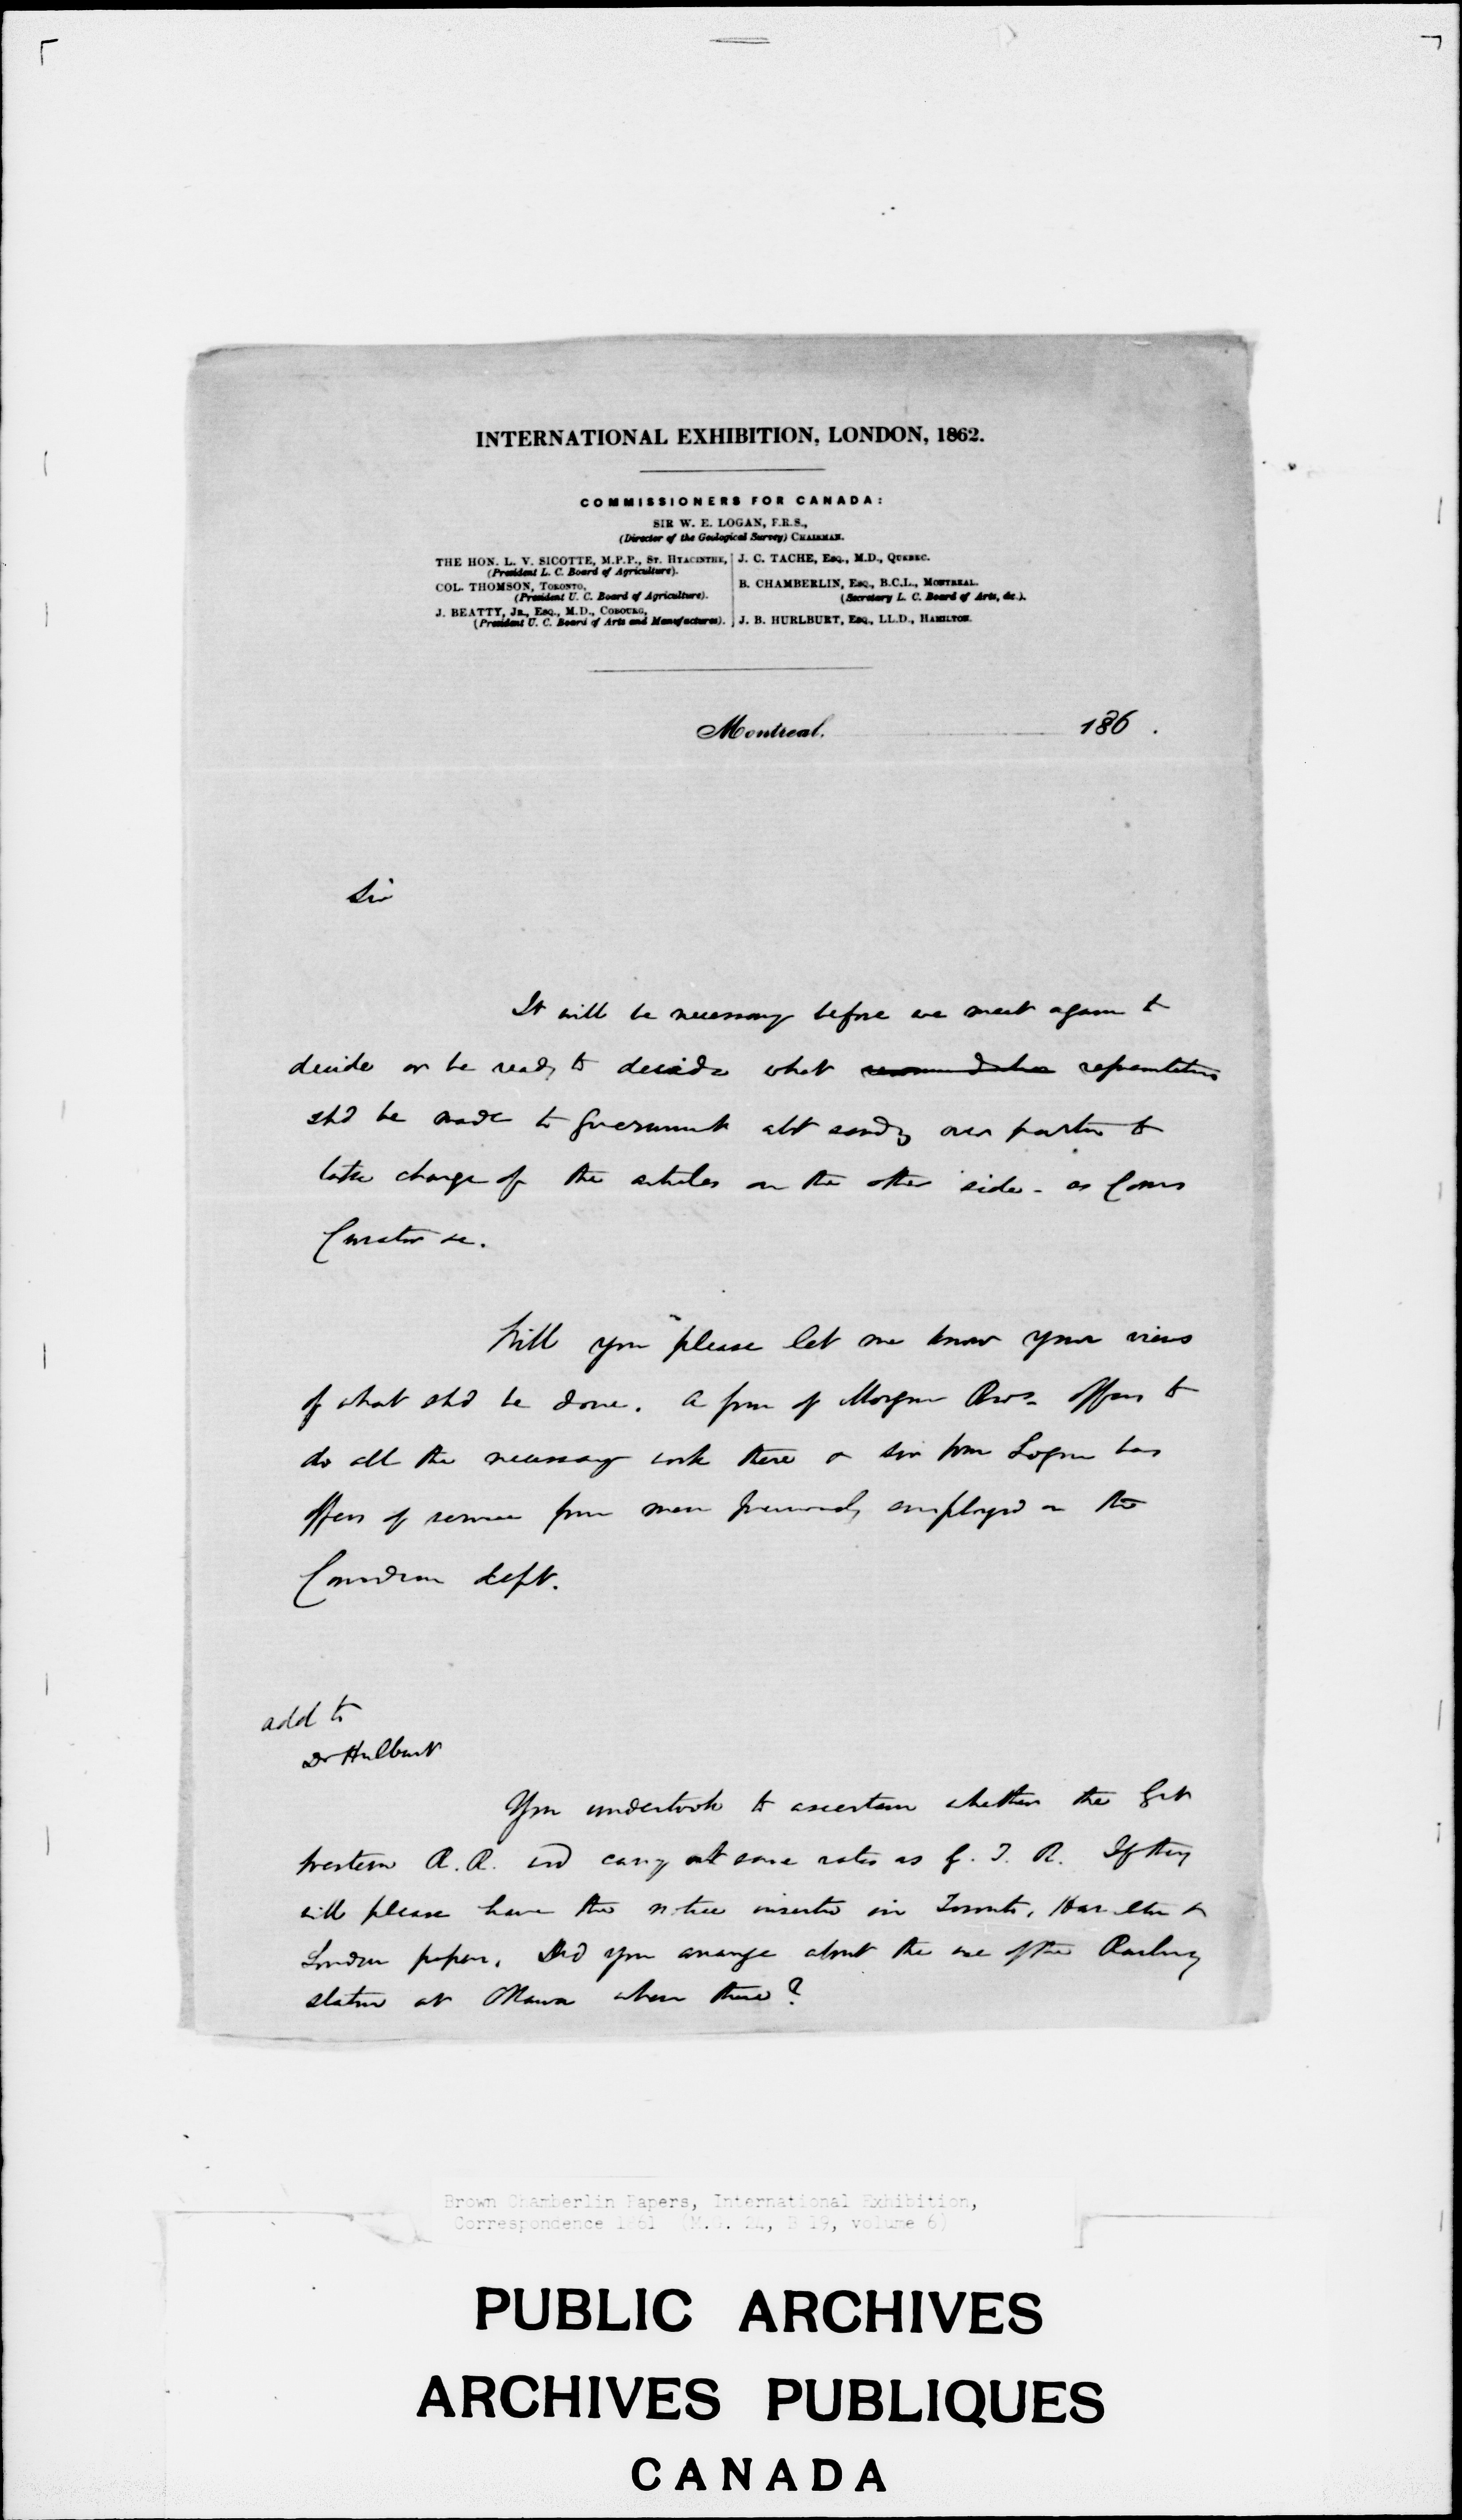 INTERNATIONAL EXHIBITION, LONDON, 1862.
COMMISSIONERS FOR CANADA:
SIR W. E. LOGAN, F.R.S.,
(Director of the Geological Survey) CHAIRMAN.
THE HON. L. V. SICOTTE, M.P.P., ST. HYACINTHE,
(President L. C. Board of Agriculture).
COL. THOMSON, TORONTO,
(President U. C. Board of Agriculture).
J. BEATTY, JR., ESQ., M.D., COBOURG,
(President U. C. Board of Arts and Manufactures).
J. C. TACHE, ESQ., M.D., QUEBEC.
B. CHAMBERLIN, ESQ., B.C.L., MONTREAL.
(Secretary L. C. Board of Arts, &c.).
J. B. HURLBURT, ESQ., LL.D., HAMILTON.
Montreal, 186 .
Sir
It will be necessary before we meet again to
decide or be ready to decide what representations
shd be made to Government abt sendg over parties to
take charge of the articles on the other side - as Comrs
Curator &c.
Will you please let me know your views
of what shd be done. A firm of Morgan Bros. offers to
do all the necessary work there & Sir Wm Logan has
offers of service from men previously employed in the
Canadian dept.
add to
Dr Hulburt
You undertook to ascertain whether the Grt
Western R.R. wd carry at same rates as G. T. R. If they
will please have the notice inserted in Toronto, Hamilton &
London papers. Did you arrange about the use of the Railway
station at Ottawa when there?
Brown Chamberlin Papers, International Exhibition,
Correspondence 1861 (M.G. 24, B 19, volume 6)
PUBLIC ARCHIVES
ARCHIVES PUBLIQUES
CANADA